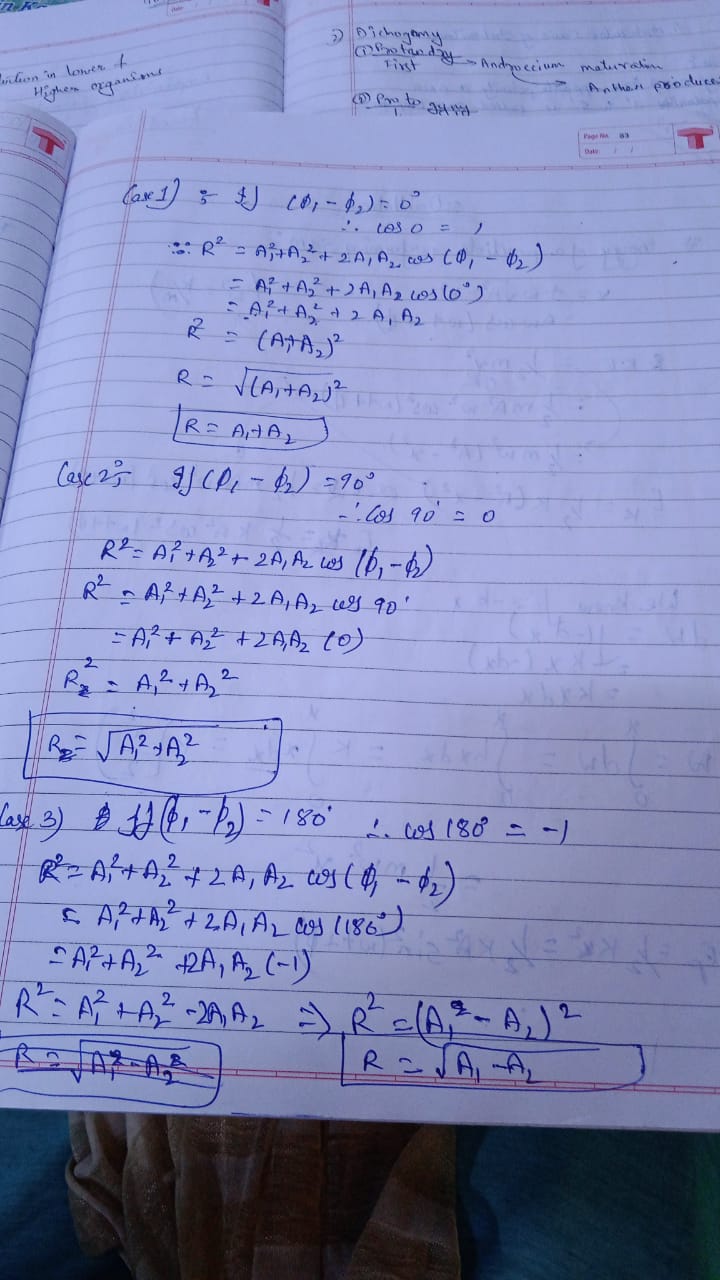 lower &
Higher organisms
2) Dichogamy
First → Androecium maturation
→ Anther produce
Page No. 83
Date: / /
Case 1) :- If (ϕ₁ - ϕ₂) = 0°
∴ cos 0 = 1
∵ R² = A₁² + A₂² + 2A₁A₂ cos (ϕ₁ - ϕ₂)
= A₁² + A₂² + 2A₁A₂ cos (0°)
= A₁² + A₂² + 2A₁A₂
R² = (A₁+A₂)²
R = √(A₁+A₂)²
R = A₁+A₂
Case 2 :- If (ϕ₁ - ϕ₂) = 90°
∴ Cos 90° = 0
R² = A₁² + A₂² + 2A₁A₂ cos (ϕ₁-ϕ₂)
R² = A₁² + A₂² + 2A₁A₂ cos 90°
= A₁² + A₂² + 2A₁A₂ (0)
R² = A₁² + A₂²
R = √A₁²+A₂²
Case 3) If (ϕ₁-ϕ₂) = 180° ∴ cos 180° = -1
R² = A₁² + A₂² + 2A₁A₂ cos (ϕ₁ - ϕ₂)
= A₁² + A₂² + 2A₁A₂ cos (180°)
= A₁² + A₂² + 2A₁A₂ (-1)
R² = A₁² + A₂² - 2A₁A₂ ⇒ R² = (A₁ - A₂)²
R = √A₁² - A₂² R = √A₁ - A₂